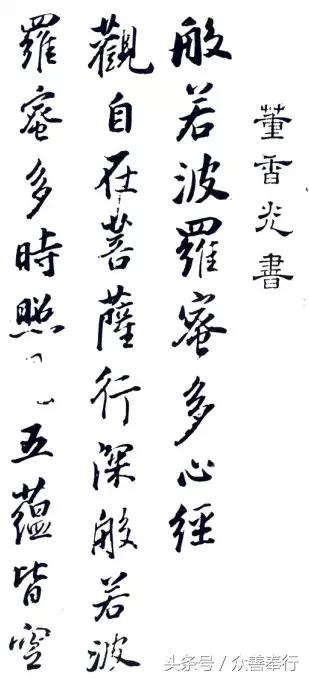 董香光書
般若波羅蜜多心經
觀自在菩薩行深般若波
羅蜜多時照五蘊皆空
头条号/众善奉行